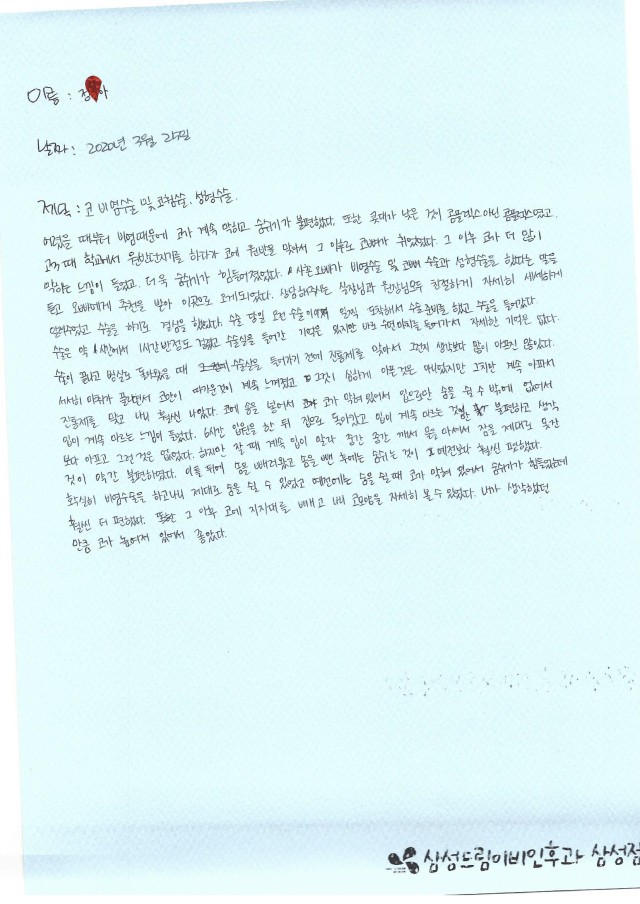 이름 : 정 아
날짜 : 2020년 3월 25일
제목 : 코 비염수술 및 코형수술, 성형수술.
어렸을 때부터 비염때문에 코가 계속 막히고 숨쉬기가 불편했다. 또한 콧대가 낮은 것이 콤플렉스아닌 콤플렉스였고,
고3 때 학교에서 원반던지기를 하다가 코에 원반을 맞아서 그 이후로 코뼈가 휘었었다. 그 이후 코가 더 많이
막히는 느낌이 들었고, 더욱 숨쉬기가 힘들어졌었다. 사촌오빠가 비염수술 및 코뼈 수술과 성형수술을 했다는 말을
듣고 오빠에게 추천을 받아 이곳으로 오게되었다. 상담해주시는 실장님과 원장님모두 친절하게 자세히 세세하게
알려주셨고 수술을 하기로 결심을 했었다. 수술 당일 오전 수술이여서 일찍 도착해서 수술준비를 했고 수술을 들어갔다.
수술은 약 1시간에서 1시간반정도 걸렸고 수술실을 들어간 기억은 있지만 바로 수면마취를 들어가서 자세한 기억은 없다.
수술이 끝나고 병실로 돌아왔을 때 수술실을 들어가기 전에 진통제를 맞아서 그런지 생각보다 많이 아프진 않았다.
서서히 마취가 풀리면서 코안이 따가운것이 계속 느껴졌고 그것이 심하게 아픈것은 아니었지만 그치만 계속 아파서
진통제를 맞고 나니 훨씬 나았다. 코에 솜을 넣어서 코가 막혀있어서 입으로만 숨을 쉴 수 밖에 없어서
입이 계속 마르는 느낌이 들었다. 6시간 입원을 한 뒤 집으로 돌아갔고 입이 계속 마르는 것만 불편하고 생각
보다 아프고 그런 것은 없었다. 하지만 잘 때 계속 입이 말라 중간 중간 깨서 물을 마셔서 잠을 제대로 못잔
것이 약간 불편하였다. 이틀 뒤에 솜을 빼러왔고 솜을 뺀 후에는 숨쉬는 것이 예전보다 훨씬 편했다.
확실히 비염수술을 하고나니 제대로 숨을 쉴 수 있었고 예전에는 숨을 쉴때 코가 막혀 있어서 숨쉬기가 힘들었는데
훨씬 더 편했다. 또한 그 이후 코에 지지대를 빼고 나니 코모양을 자세히 볼 수 있었다. 내가 생각했던
만큼 코가 높아져 있어서 좋았다.
삼성드림이비인후과 삼성점